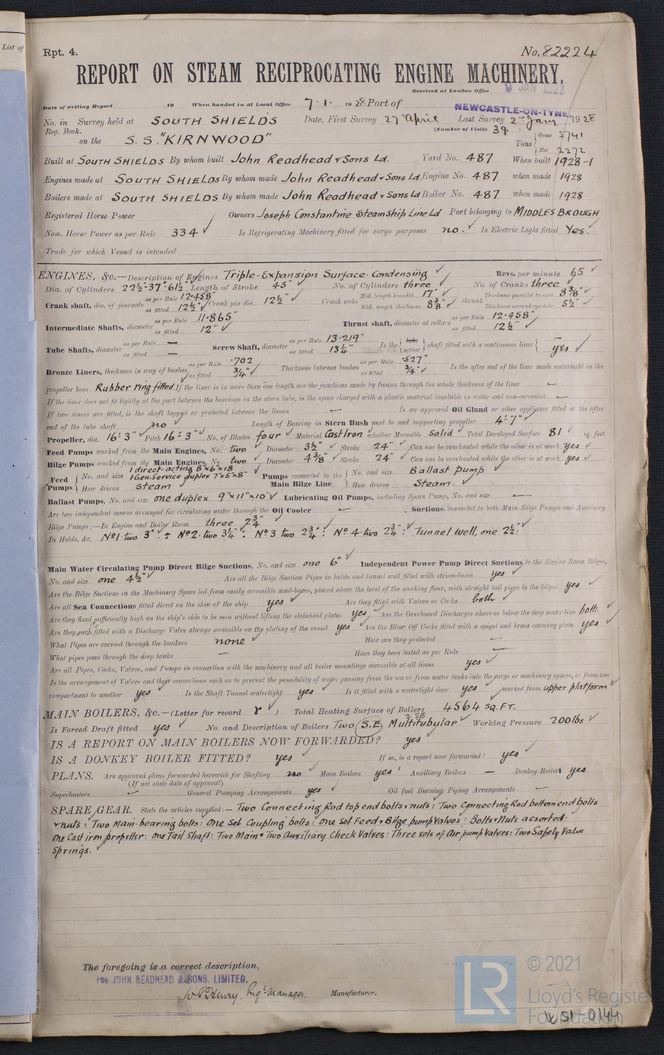 List of
Rpt. 4.
No. 82224
REPORT ON STEAM RECIPROCATING ENGINE MACHINERY.
Received at London Office
JAN 1928
Date of writing Report 19 When handed in at Local Office 7.1. 1928 Port of NEWCASTLE-ON-TYNE
No. in Survey held at SOUTH SHIELDS Date, First Survey 27 April Last Survey 2nd Jany 1928
Reg. Book. (Number of Visits 39.)
on the S.S. "KIRNWOOD" Tons Gross 3741 Net 2272
Built at SOUTH SHIELDS By whom built John Readhead & Sons Ld. Yard No. 487 When built 1928-1
Engines made at SOUTH SHIELDS By whom made John Readhead & Sons Ld Engine No. 487 when made 1928
Boilers made at SOUTH SHIELDS By whom made John Readhead & Sons Ld Boiler No. 487 when made 1928
Registered Horse Power Owners Joseph Constantine Steam Ship Line Ld Port belonging to MIDDLESBROUGH
Nom. Horse Power as per Rule 334 ✓ Is Refrigerating Machinery fitted for cargo purposes no. ✓ Is Electric Light fitted Yes. ✓
Trade for which Vessel is intended
ENGINES, &c.—Description of Engines Triple-Expansion Surface-Condensing ✓ Revs. per minute 65
Dia. of Cylinders 22½"-37"-61½" Length of Stroke 45" No. of Cylinders three ✓ No. of Cranks three ✓
Crank shaft, dia. of journals as per Rule 12.458 as fitted 12½" ✓ Crank pin dia. 12½" ✓ Crank webs Mid. length breadth 17" ✓ Mid. length thickness 8⅜" ✓ shrunk Thickness parallel to axis 8⅜" ✓ Thickness around eye-hole 5½" ✓
Intermediate Shafts, diameter as per Rule 11.865 as fitted 12" ✓ Thrust shaft, diameter at collars as per Rule 12.458" as fitted 12½" ✓
Tube Shafts, diameter as per Rule — as fitted — Screw Shaft, diameter as per Rule 13.219" as fitted 13¼" ✓ Is the tube screw shaft fitted with a continuous liner — yes ✓
Bronze Liners, thickness in way of bushes as per Rule .702 as fitted ¾" ✓ Thickness between bushes as per Rule .527" as fitted ¾" ✓ Is the after end of the liner made watertight in the
propeller boss Rubber ring fitted If the liner is in more than one length are the junctions made by fusion through the whole thickness of the liner —
If the liner does not fit tightly at the part between the bearings in the stern tube, is the space charged with a plastic material insoluble in water and non-corrosive —
If two liners are fitted, is the shaft lapped or protected between the liners — Is an approved Oil Gland or other appliance fitted at the after
end of the tube shaft no ✓ Length of Bearing in Stern Bush next to and supporting propeller 4'-7" ✓
Propeller, dia. 16'-3" ✓ Pitch 16'-3" ✓ No. of Blades four ✓ Material Cast Iron ✓ whether Moveable solid ✓ Total Developed Surface 81 ✓ sq. feet
Feed Pumps worked from the Main Engines, No. two ✓ Diameter 3½" ✓ Stroke 24" ✓ Can one be overhauled while the other is at work yes ✓
Bilge Pumps worked from the Main Engines, No. two ✓ Diameter 4⅜" ✓ Stroke 24" ✓ Can one be overhauled while the other is at work yes ✓
Feed Pumps No. and size 1 direct-acting 8"x6"x18" 1 Gen. Service duplex 7"x5"x8" How driven steam ✓ Pumps connected to the Main Bilge Line No. and size Ballast pump ✓ How driven Steam. ✓
Ballast Pumps, No. and size one duplex 9"x11"x10" ✓ Lubricating Oil Pumps, including Spare Pump, No. and size —
Are two independent means arranged for circulating water through the Oil Cooler — Suctions, connected to both Main Bilge Pumps and Auxiliary
Bilge Pumps;—In Engine and Boiler Room three 2¾" ✓
In Holds, &c. No 1. two 3" : No 2. two 3¼" : No 3 two 2¾" : No 4. two 2¾" : Tunnel well, one 2½" ✓
Main Water Circulating Pump Direct Bilge Suctions, No. and size one 6" ✓ Independent Power Pump Direct Suctions to the Engine Room Bilges,
No. and size one 4½" ✓ Are all the Bilge Suction Pipes in holds and tunnel well fitted with strum-boxes yes ✓
Are the Bilge Suctions in the Machinery Space led from easily accessible mud-boxes, placed above the level of the working floor, with straight tail pipes to the bilges yes ✓
Are all Sea Connections fitted direct on the skin of the ship yes ✓ Are they fitted with Valves or Cocks both ✓
Are they fixed sufficiently high on the ship's side to be seen without lifting the stokehold plates yes ✓ Are the Overboard Discharges above or below the deep water line both ✓
Are they each fitted with a Discharge Valve always accessible on the plating of the vessel yes ✓ Are the Blow Off Cocks fitted with a spigot and brass covering plate yes ✓
What Pipes are carried through the bunkers none ✓ How are they protected —
What pipes pass through the deep tanks — Have they been tested as per Rule —
Are all Pipes, Cocks, Valves, and Pumps in connection with the machinery and all boiler mountings accessible at all times yes ✓
Is the arrangement of Valves and their connections such as to prevent the possibility of water passing from the sea or from water tanks into the cargo or machinery spaces, or from one
compartment to another yes ✓ Is the Shaft Tunnel watertight yes ✓ Is it fitted with a watertight door yes ✓ worked from upper platform ✓
MAIN BOILERS, &c.—(Letter for record Y ✓) Total Heating Surface of Boilers 4564 SQ. FT.
Is Forced Draft fitted yes ✓ No. and Description of Boilers Two S.E. Multitubular ✓ Working Pressure 200 lbs ✓
IS A REPORT ON MAIN BOILERS NOW FORWARDED? yes ✓
IS A DONKEY BOILER FITTED? yes ✓ If so, is a report now forwarded? yes ✓
PLANS. Are approved plans forwarded herewith for Shafting no ✓ Main Boilers yes ✓ Auxiliary Boilers — Donkey Boilers yes
(If not state date of approval)
Superheaters — General Pumping Arrangements yes ✓ Oil fuel Burning Piping Arrangements —
SPARE GEAR. State the articles supplied:— Two Connecting Rod top end bolts & nuts: Two Connecting Rod bottom end bolts
& nuts: Two Main-bearing bolts: One Set Coupling bolts: one set Feed & Bilge pump Valves: Bolts & Nuts assorted:
One Cast iron propeller: One Tail Shaft: Two Main & Two Auxiliary Check Valves: Three sets of Air pump Valves: Two Safety Valve
Springs. ✓
The foregoing is a correct description,
FOR JOHN READHEAD & SONS, LIMITED.
Eng. Manager. Manufacturer.
LR
© 2021
Lloyd's Register
Foundation
W51-0144